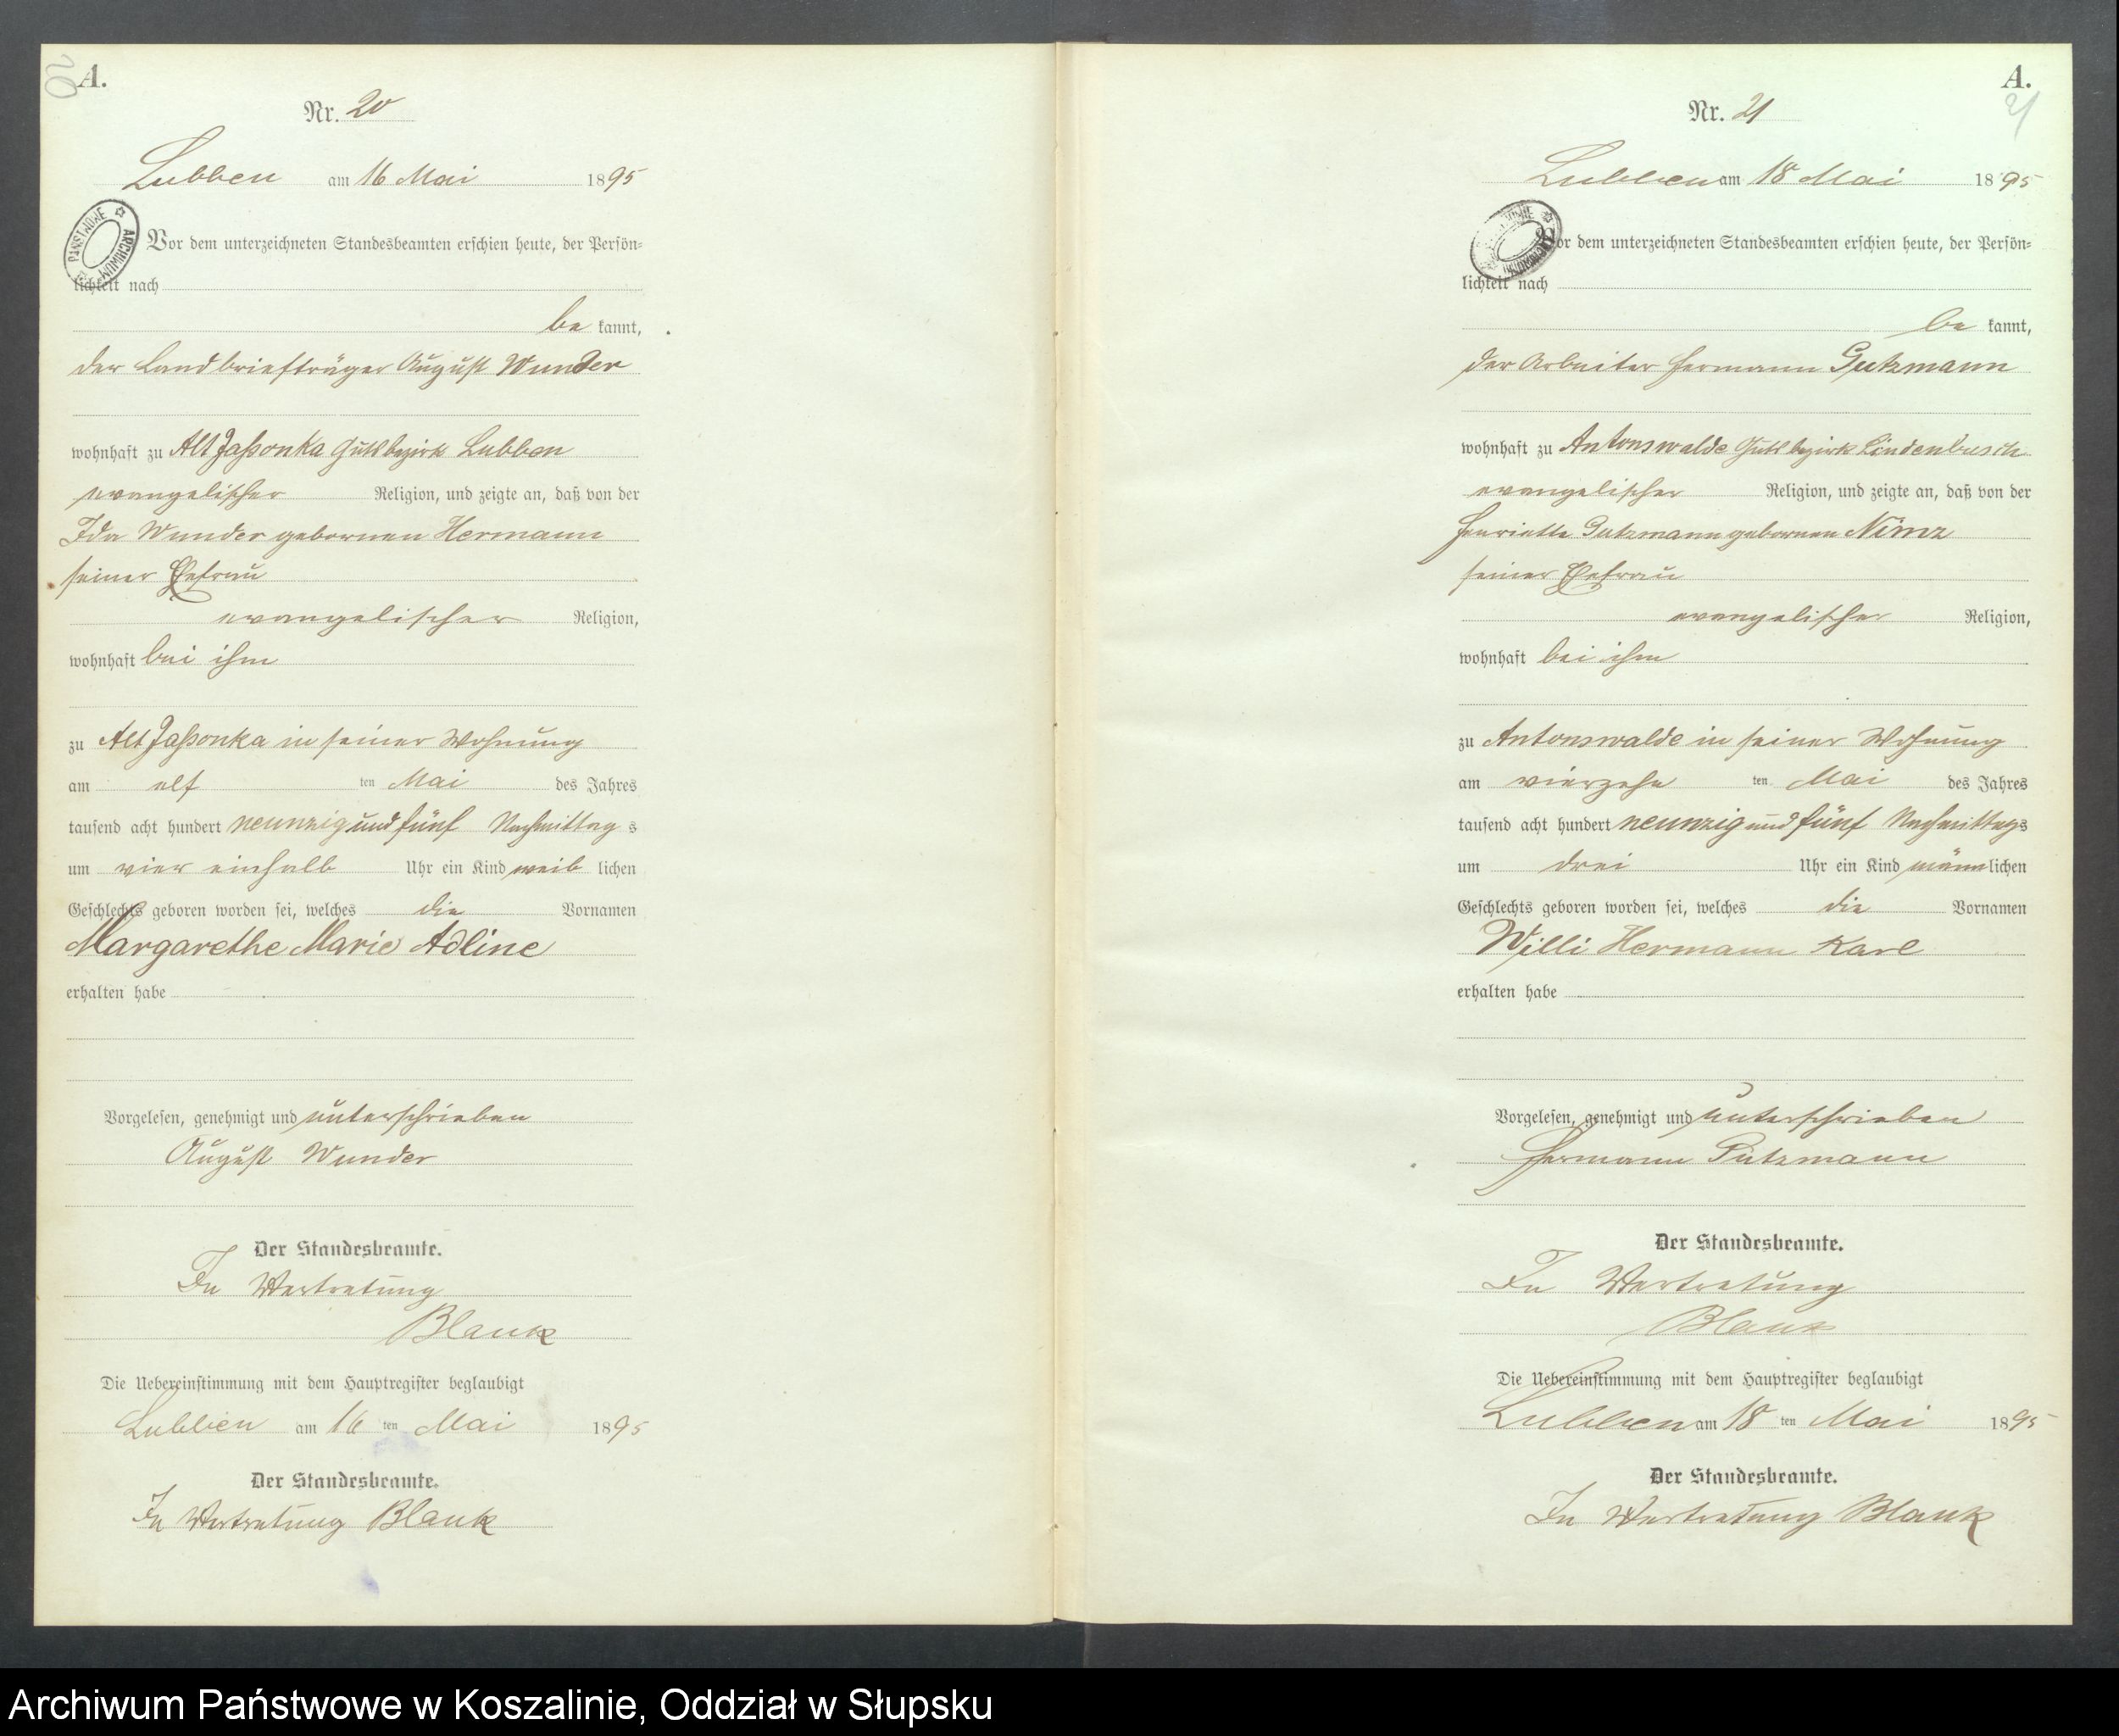 20
A.
Nr. 20
Lubben am 16 Mai 1895
ARCHIWUM PAŃSTWOWE
Vor dem unterzeichneten Standesbeamten erschien heute, der Persön=
lichkeit nach
be kannt,
der Landbriefträger August Wunder
wohnhaft zu Alt Jaßonka Gutsbezirk Lubben
evangelischer Religion, und zeigte an, daß von der
Ida Wunder gebornen Hermann
seiner Ehefrau
evangelischer Religion,
wohnhaft bei ihm
zu Alt Jaßonka in seiner Wohnung
am elf ten Mai des Jahres
tausend acht hundert neunzig und fünf Nachmittag s
um vier einhalb Uhr ein Kind weib lichen
Geschlechts geboren worden sei, welches die Vornamen
Margarethe Marie Adline
erhalten habe
Vorgelesen, genehmigt und unterschrieben
August Wunder
Der Standesbeamte.
In Vertretung
Blank
Die Uebereinstimmung mit dem Hauptregister beglaubigt
Lubben am 16 ten Mai 1895
Der Standesbeamte.
In Vertretung Blank
A.
21
Nr. 21
Lubben am 18 Mai 1895
Vor dem unterzeichneten Standesbeamten erschien heute, der Persön=
lichkeit nach
be kannt,
der Arbeiter Hermann Gutzmann
wohnhaft zu Antonswalde Gutsbezirk Lindenbusch
evangelischer Religion, und zeigte an, daß von der
Henriette Gutzmann gebornen Nimz
seiner Ehefrau
evangelischer Religion,
wohnhaft bei ihm
zu Antonswalde in seiner Wohnung
am vierzehn ten Mai des Jahres
tausend acht hundert neunzig und fünf Nachmittags
um drei Uhr ein Kind männ lichen
Geschlechts geboren worden sei, welches die Vornamen
Willi Hermann Karl
erhalten habe
Vorgelesen, genehmigt und unterschrieben
Hermann Gutzmann
Der Standesbeamte.
In Vertretung
Blank
Die Uebereinstimmung mit dem Hauptregister beglaubigt
Lubben am 18 ten Mai 1895
Der Standesbeamte.
In Vertretung Blank
Archiwum Państwowe w Koszalinie, Oddział w Słupsku